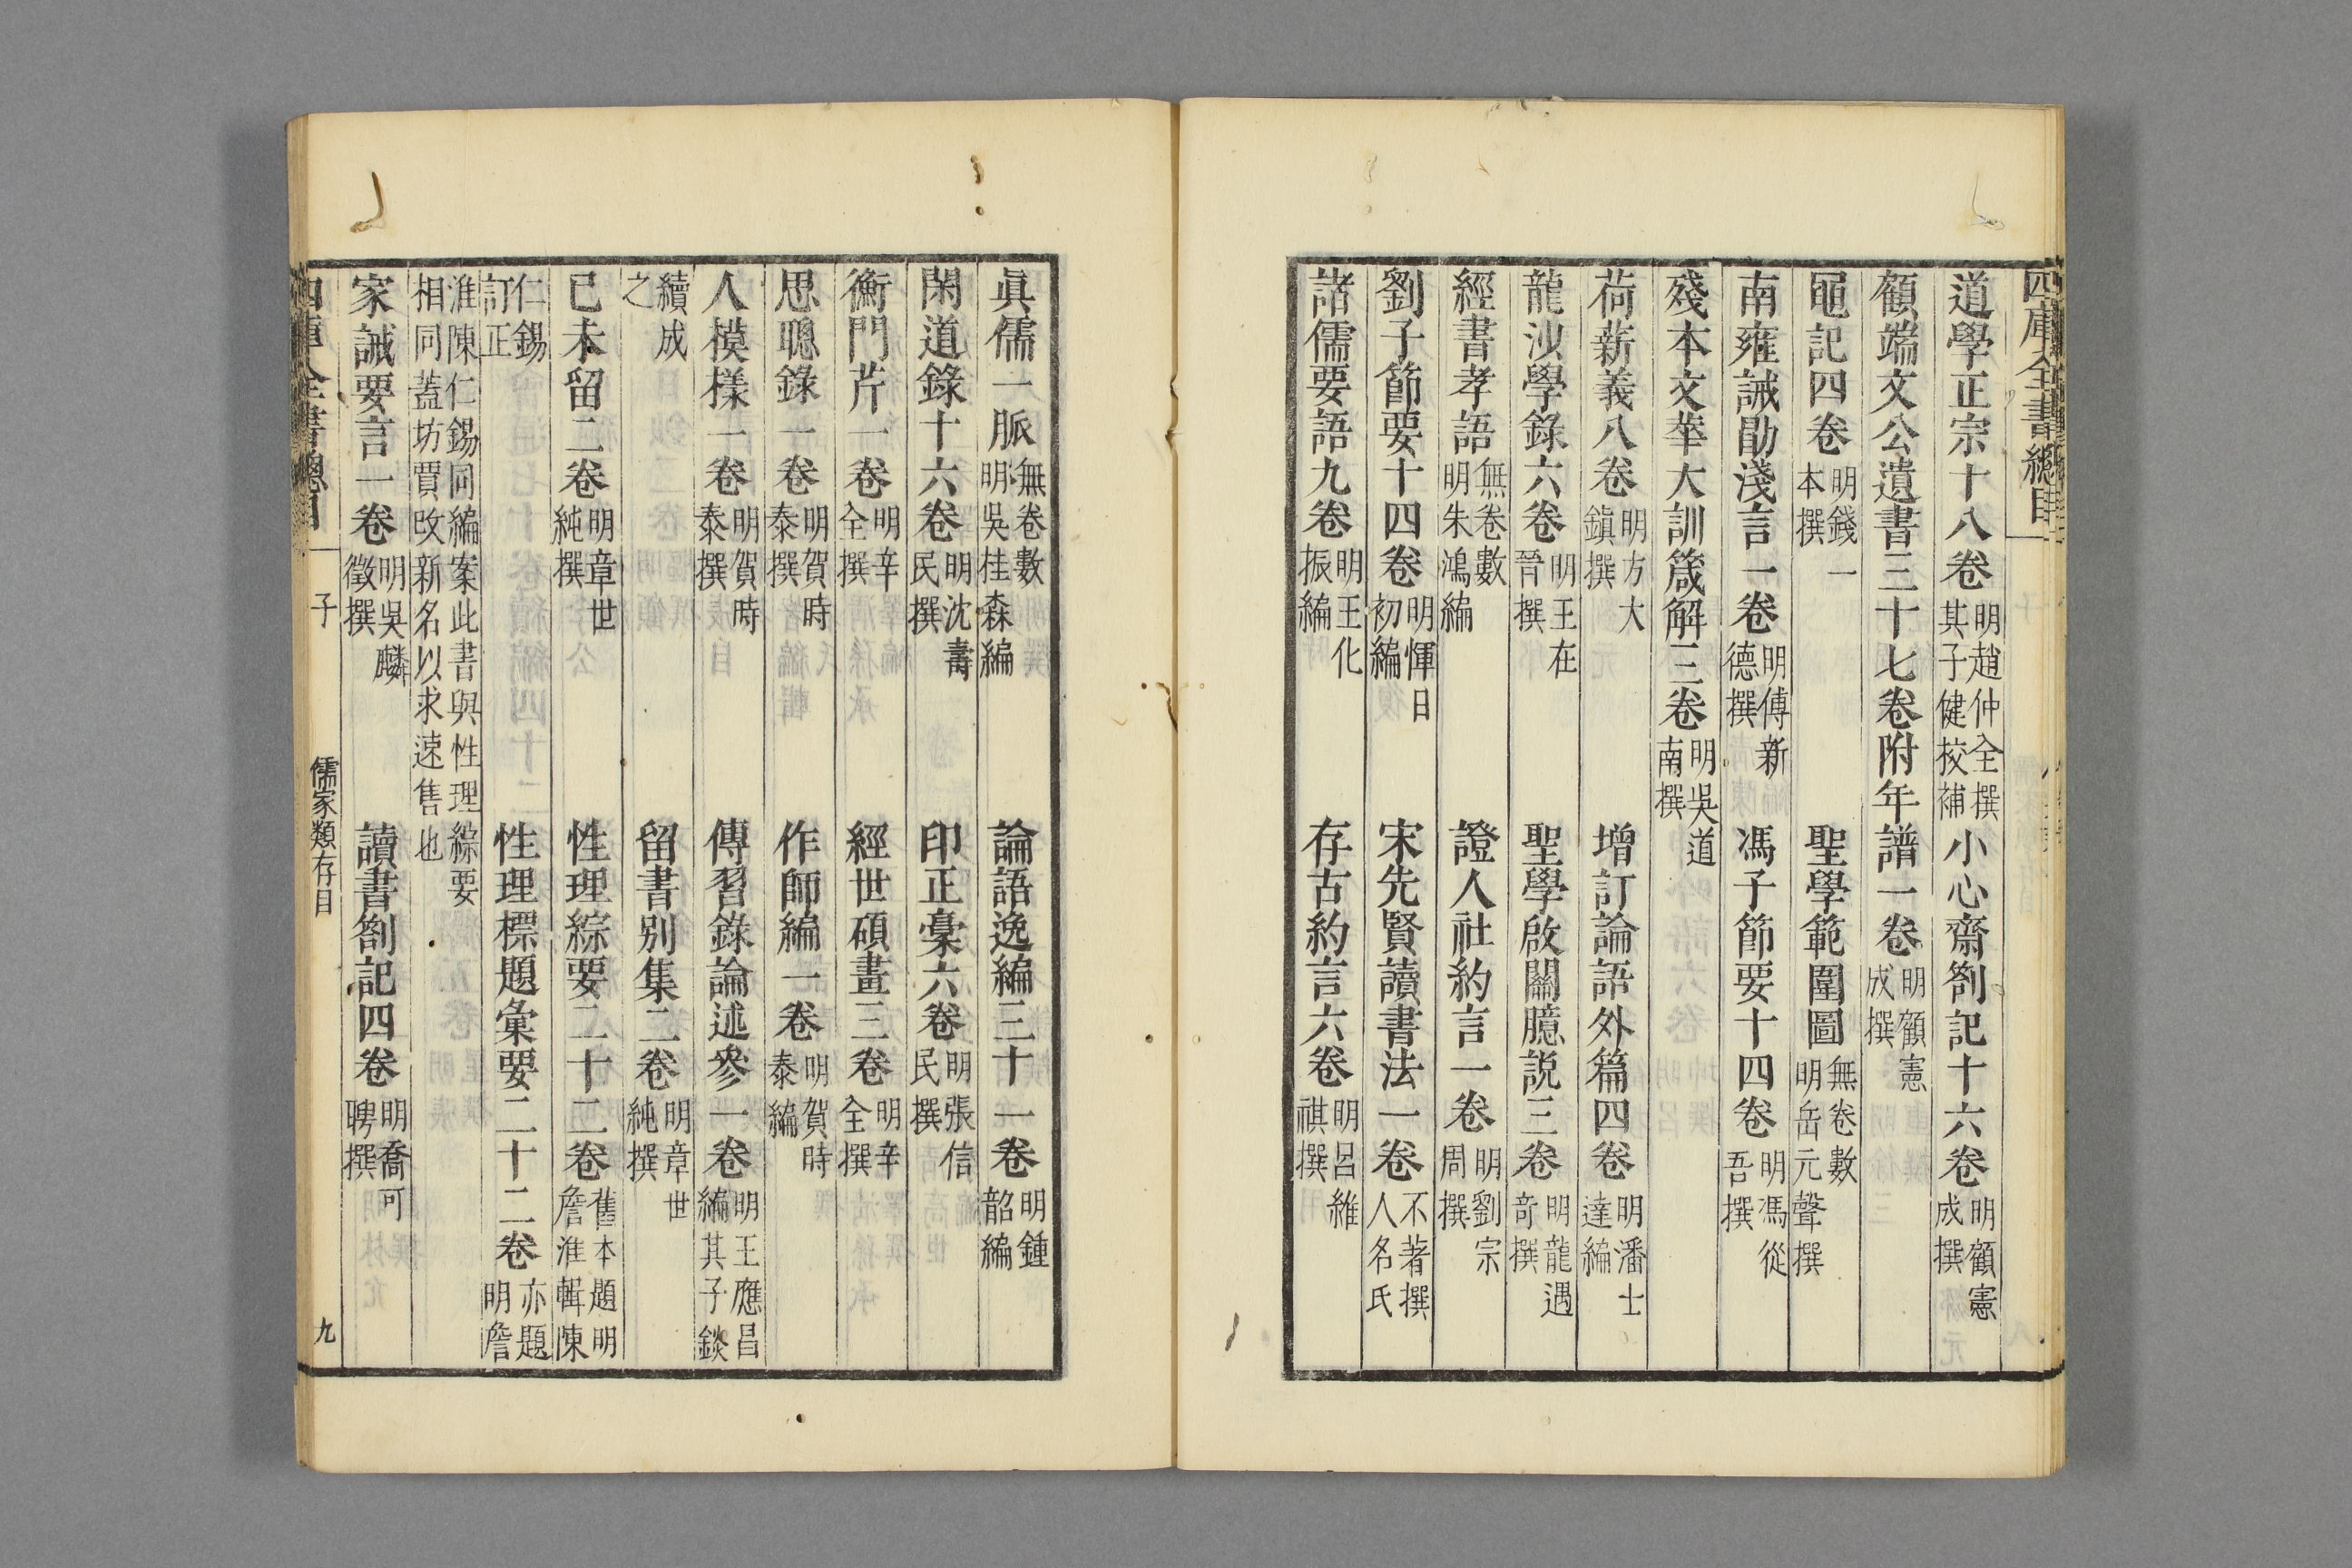 四庫全書總目
道學正宗十八卷 明趙仲全撰其子健校補 小心齋劄記十六卷 明顧憲成撰
顧端文公遺書三十七卷附年譜一卷 明顧憲成撰
黽記四卷 明錢一本撰 聖學範圍圖 無卷數明岳元聲撰
南雍誡勖淺言一卷 明傅新德撰 馮子節要十四卷 明馮從吾撰
殘本文華大訓箴解三卷 明吳道南撰
荷薪義八卷 明方大鎮撰 增訂論語外篇四卷 明潘士達編
龍沙學錄六卷 明王在晉撰 聖學啟關臆説三卷 明龍遇奇撰
經書孝語 無卷數明朱鴻編 證人社約言一卷 明劉宗周撰
劉子節要十四卷 明惲日初編 宋先賢讀書法一卷 不著撰人名氏
諸儒要語九卷 明王化振編 存古約言六卷 明呂維祺撰
眞儒一脈 無卷數明吳桂森編 論語逸編三十一卷 明鍾韶編
閑道錄十六卷 明沈壽民撰 印正稾六卷 明張信民撰
衡門芹一卷 明辛全撰 經世碩畫三卷 明辛全撰
思聰錄一卷 明賀時泰撰 作師編一卷 明賀時泰編
人模樣一卷 明賀時泰撰 傳習錄論述參一卷 明王應昌編其子鍁
續成之 留書別集二卷 明章世純撰
已未留二卷 明章世純撰 性理綜要二十二卷 舊本題明詹淮輯陳
仁錫訂正 性理標題彙要二十二卷 亦題明詹
淮陳仁錫同編案此書與性理綜要相同蓋坊賈改新名以求速售也
家誡要言一卷 明吳麟徵撰 讀書劄記四卷 明喬可聘撰
四庫全書總目 子 儒家類存目 九